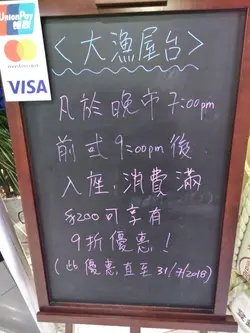 UnionPay
银联
mastercard
VISA
<大漁屋台>
凡於晚市 7:00pm
前或 9:00pm 後
入座,消費滿
$200可享有
9折優惠!
(此優惠直至 31/7/2018)